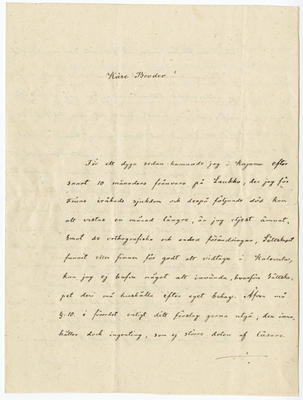 Käre Broder!
För ett dygn sedan hamnade jag i Kajana efter
snart 10 månaders frånvaro på Laukko, der jag för
Trans iråkade sjukdom och derpå följande död kom
att vistas en månad längre, än jag eljest ämnat.
Emot de orthografiska och andra förändringar, Sällskapet
funnit eller finner för godt att vidtaga i Kalevala,
kan jag ej hafva något att invända, hvarför Sällska-
pet deri må hushålla efter eget behag. Äfven må
§. 10. i företalet enligt ditt förslag gerna utgå, den inne-
håller dock ingenting, som ej större delen af läsare